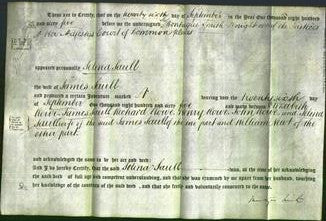 These are to Certify, that on the twenty sixth day of September in the Year One thousand eight hundred
and sixty five before me the undersigned Montague Smith Knight one of the Justices
of Her Majestys Court of Common Pleas
appeared personally Selina Saull
the wife of James Saull
and produced a certain Indenture marked A bearing date the twenty sixth day
of September One thousand eight hundred and sixty five and made between Elizabeth
Howe James Saull Richard Howe Henry Howe John Howe and Selina
Saull wife of the said James Saull of the one part and William of the
other part
and acknowledged the same to be her act and deed:
And I do hereby Certify, that the said Selina Saull was, at the time of her acknowledging
the said deed of full age and competent understanding, and that she was examined by me apart from her husband, touching
her knowledge of the contents of the said deed, and that she freely and voluntarily consented to the same.